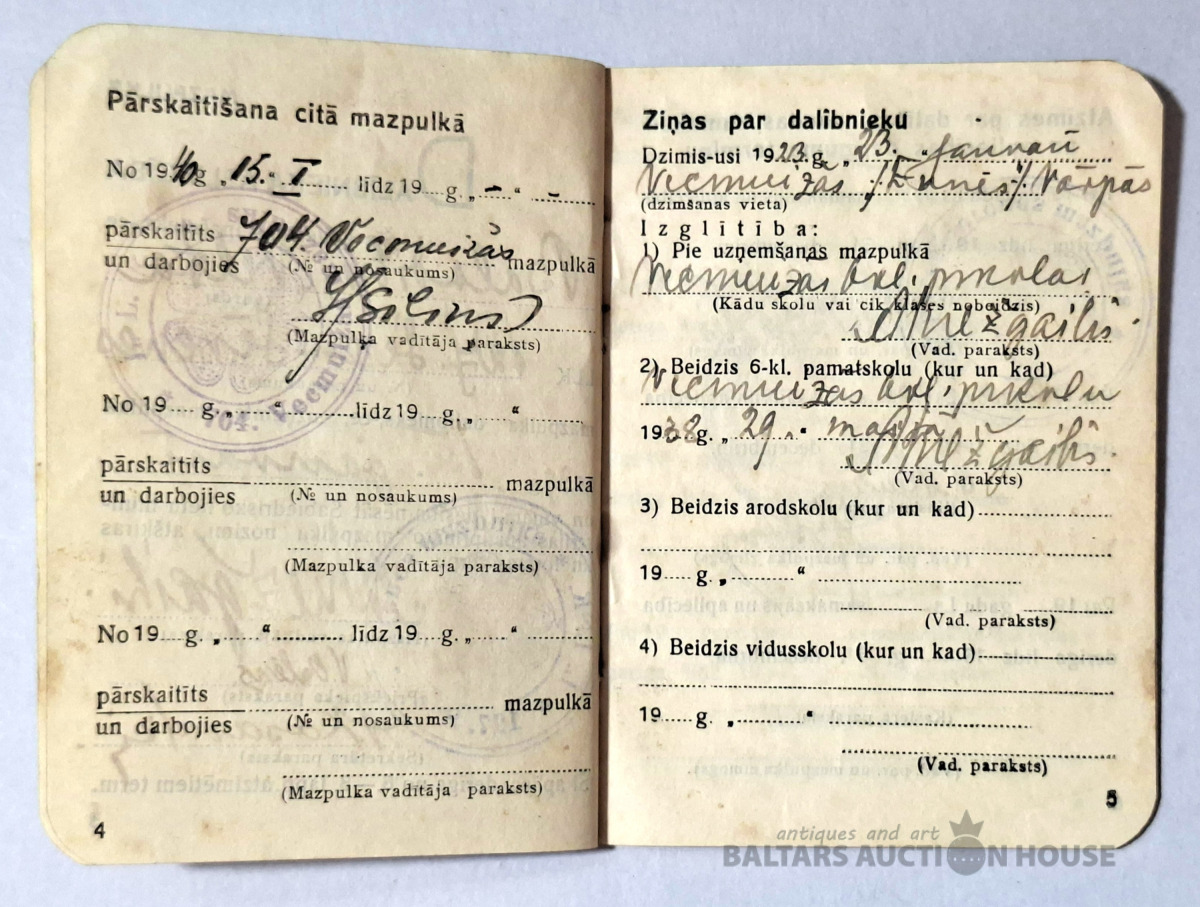 Pārskaitīšana citā mazpulkā
No 1940g „15.“ I līdz 19 g. „–“ –
pārskaitīts 704. Vecmuižas mazpulkā
un darbojies (№ un nosaukums)
(Mazpulka vadītāja paraksts)
No 19 g. „ “ līdz 19 g. „ “
pārskaitīts mazpulkā
un darbojies (№ un nosaukums)
(Mazpulka vadītāja paraksts)
No 19 g. „ “ līdz 19 g. „ “
pārskaitīts mazpulkā
un darbojies (№ un nosaukums)
(Mazpulka vadītāja paraksts)
4
704. Vecmui
Ziņas par dalībnieku
Dzimis-usi 1923.g. „23.“ janvarī
Vecmuižas Vārpās
(dzimšanas vieta)
Izglītība:
1) Pie uzņemšanas mazpulkā
Vecmuižas
(Kādu skolu vai cik klases nobeidzis)
Mežgailis
(Vad. paraksts)
2) Beidzis 6-kl. pamatskolu (kur un kad)
Vecmuižas
1938g. „29.“ maijā
Mežgailis
(Vad. paraksts)
3) Beidzis arodskolu (kur un kad)
19 g. „ “
(Vad. paraksts)
4) Beidzis vidusskolu (kur un kad)
19 g. „ “
(Vad. paraksts)
5
antiques and art
BALTARS AUCTION HOUSE